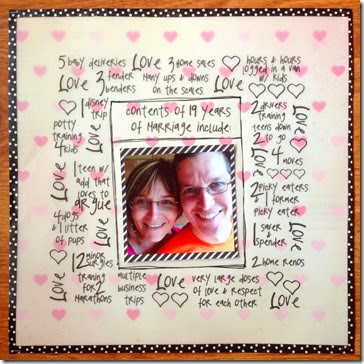 5 baby deliveries
Love
3 home sales
hours & hours
logged in a van
w/ kids
Love
2 fender
benders
Many ups & downs
on the scales
Love
1 disney
trip
Love
potty
training
4 kids
contents of 19 years
of Marriage include:
2 drivers
training
teens down
2 to go
Love
4 moves
Love
1 teen w/
add that
loves to
argue
2 picky eaters
& 1 former
picky eater
4 dogs
& 1 litter
of pups
Love
1 saver
& 1 spender
Love
12 minor
surgies
2 home renos
Love
training
for 2
Marathons
multiple
business
trips
Love
very large doses
of love & respect
for each other
Love